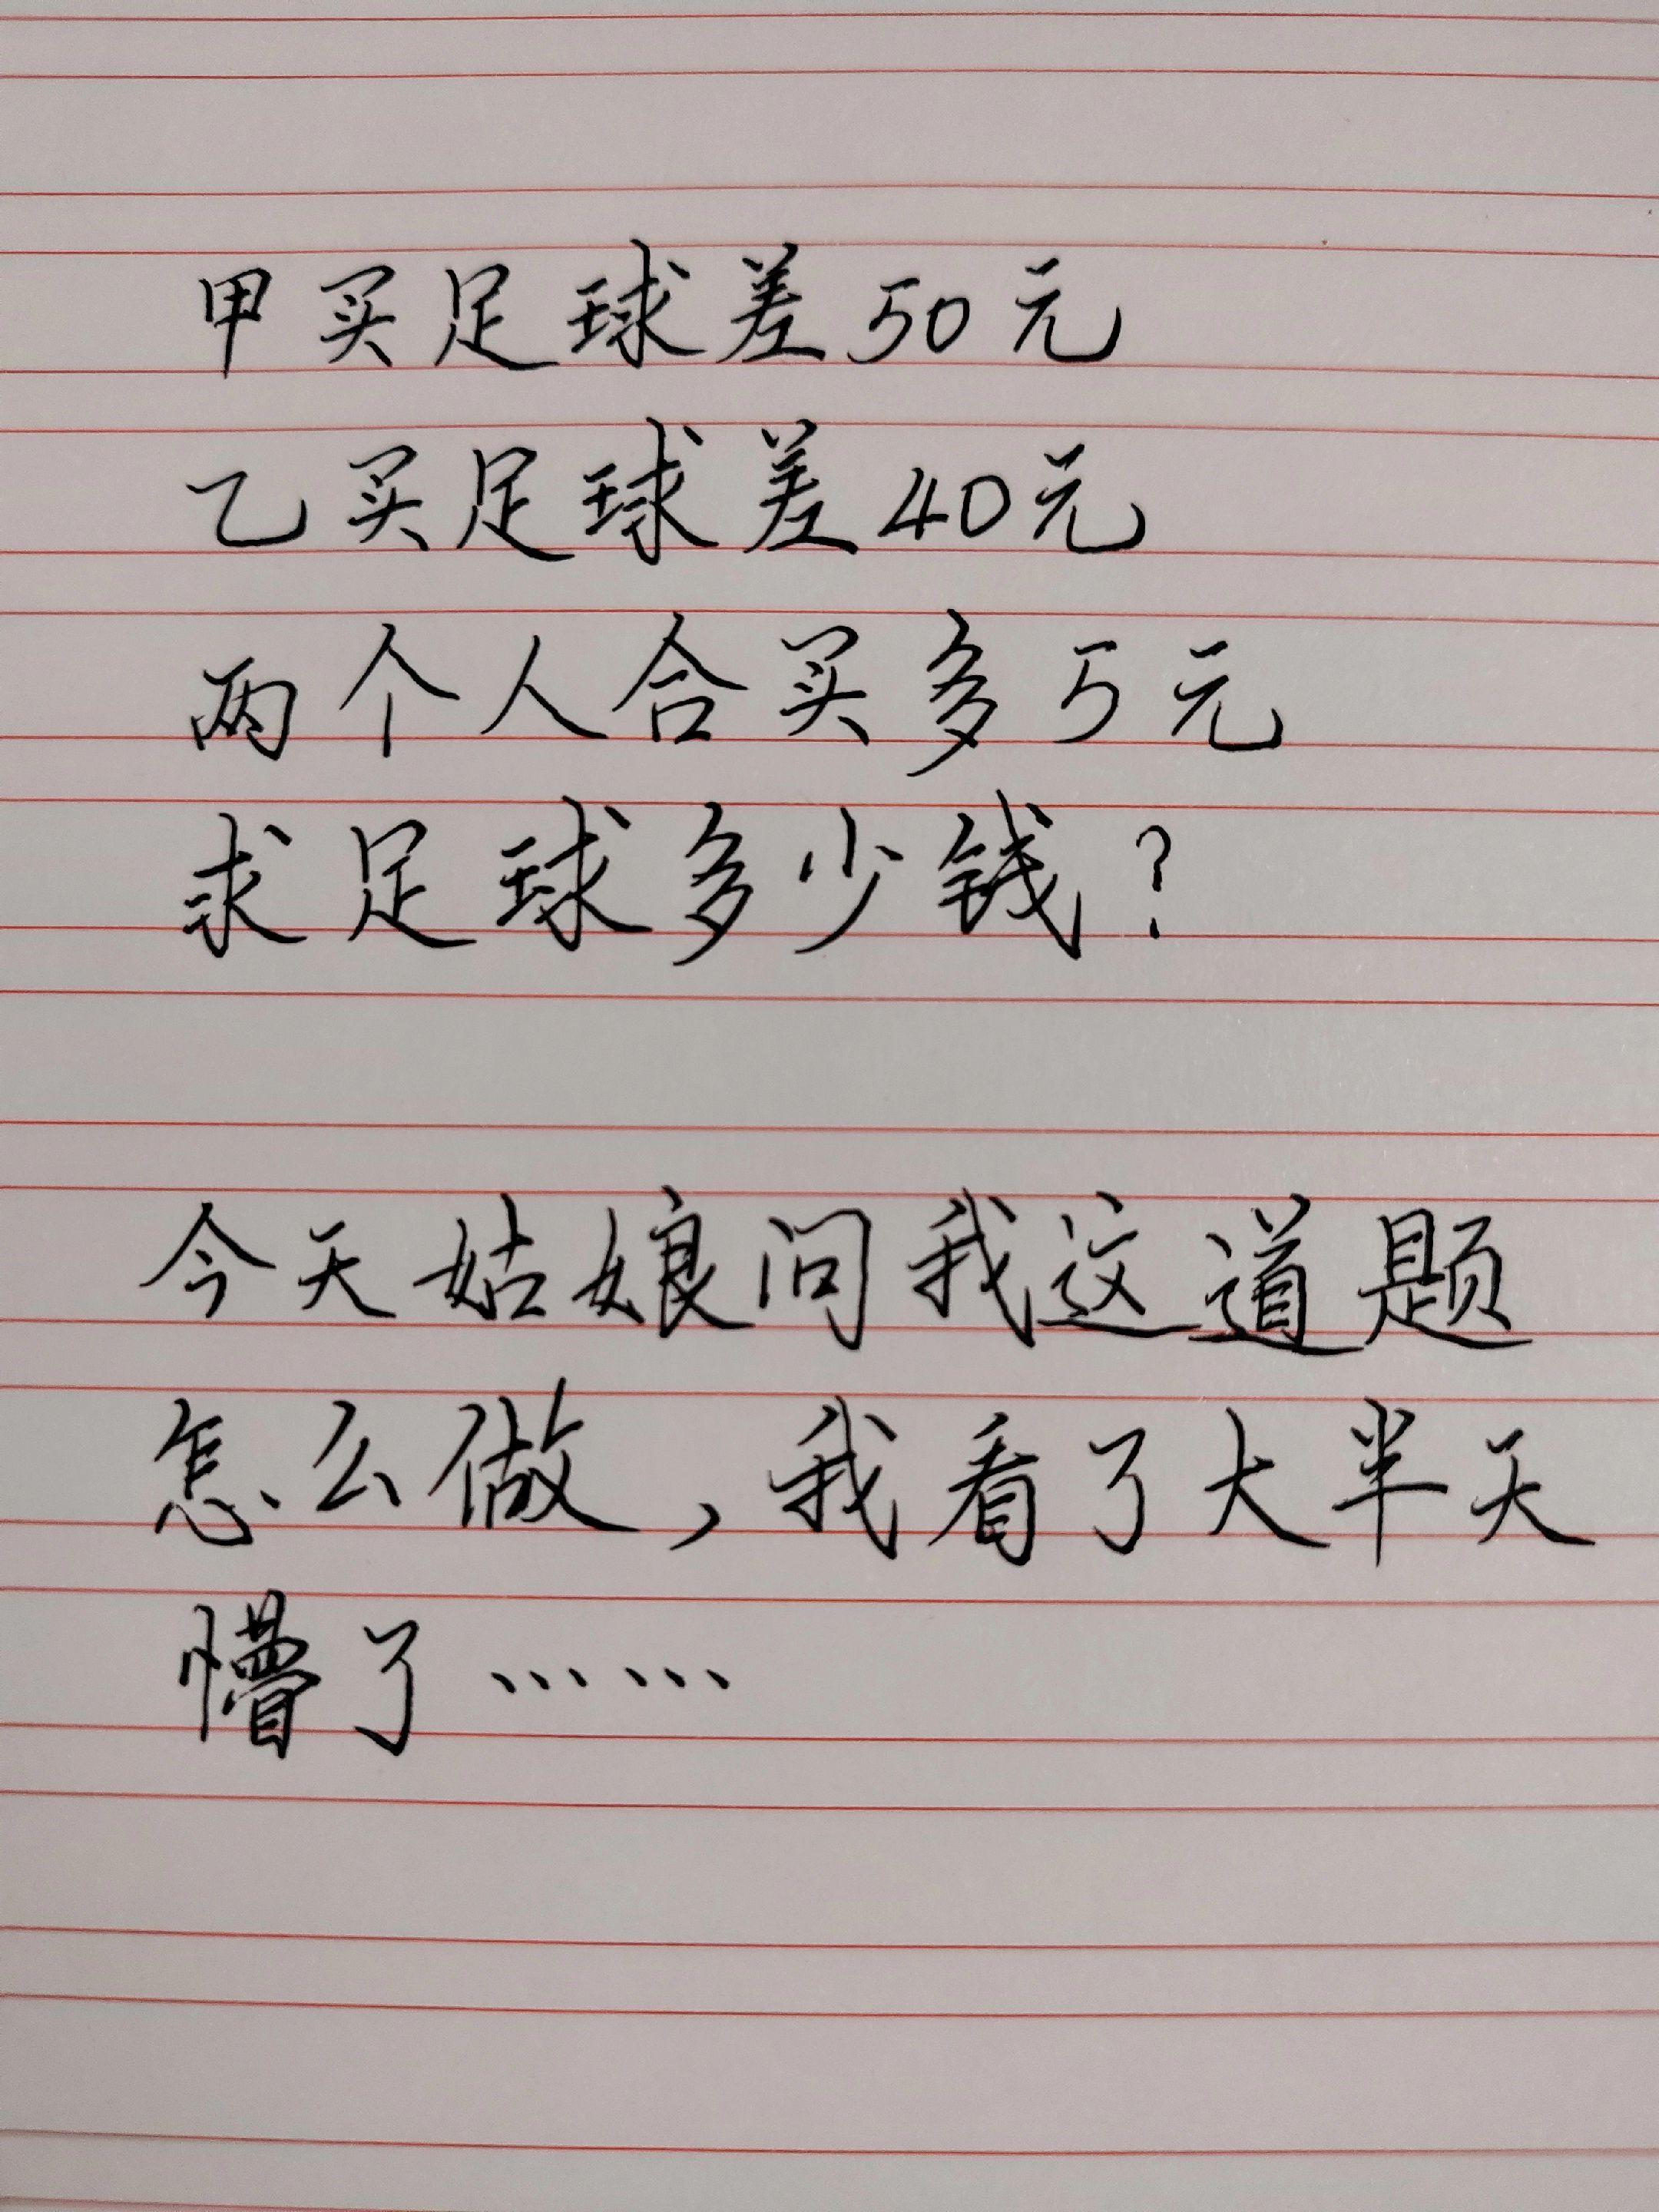 甲买足球差50元
乙买足球差40元
两个人合买多5元
求足球多少钱?
今天姑娘问我这道题
怎么做,我看了大半天
懵了……